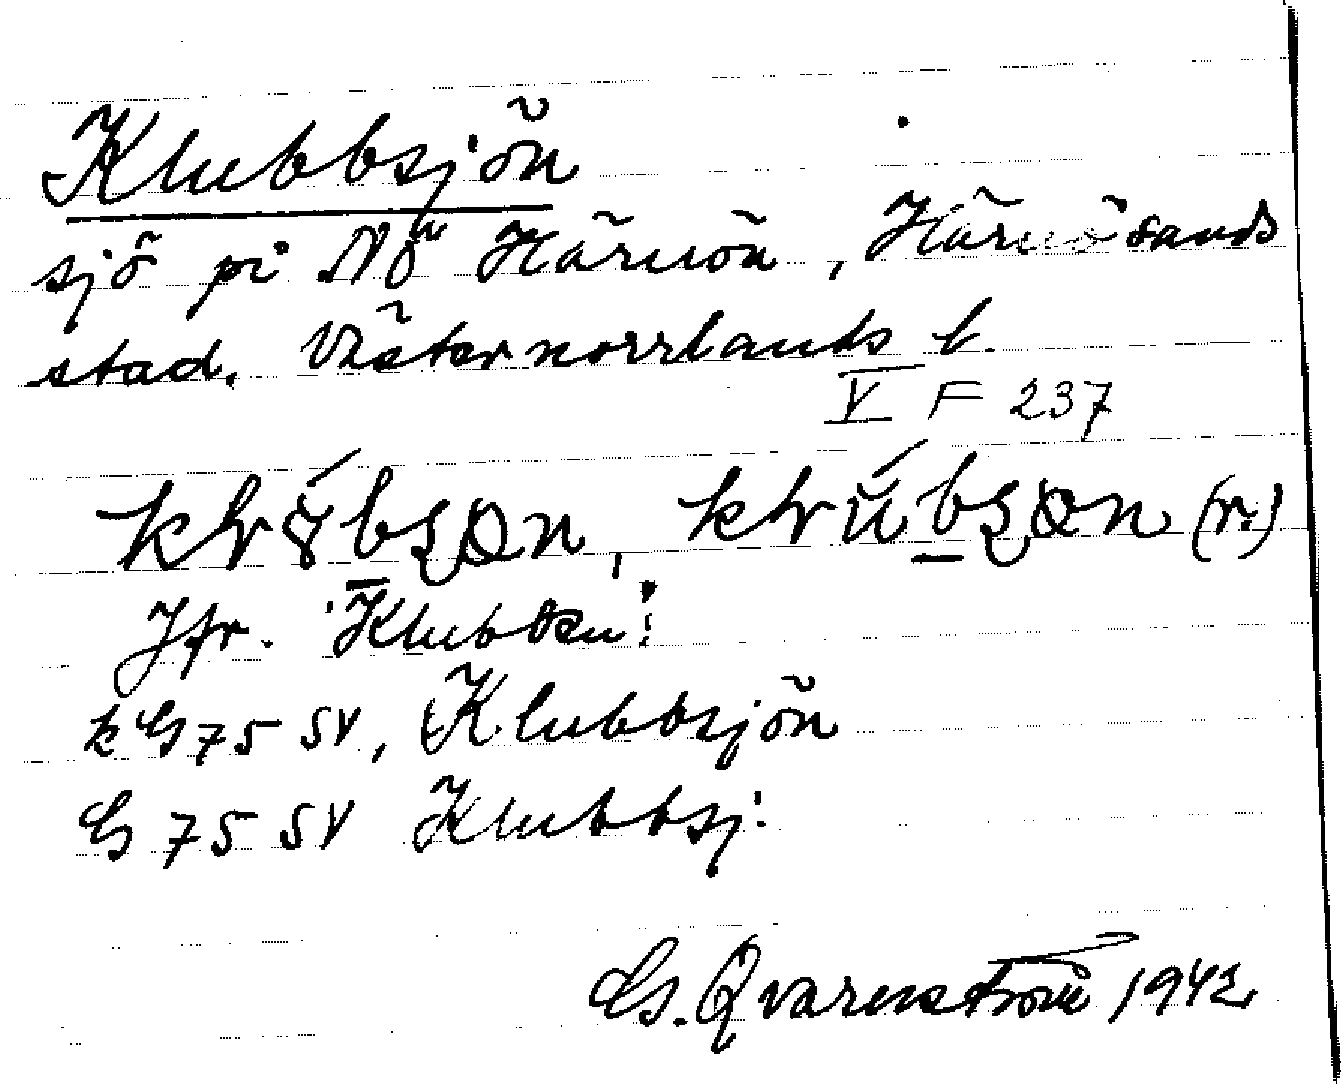 Klubbsjön
sjö på Nö Härnön, Härnösands
stad. Västernorrlands l.
V F 237
(r.)
Jfr. Klubben!
k G 75 SV, Klubbsjön
G 75 SV Klubbsj:
G. Qvarnström 1942